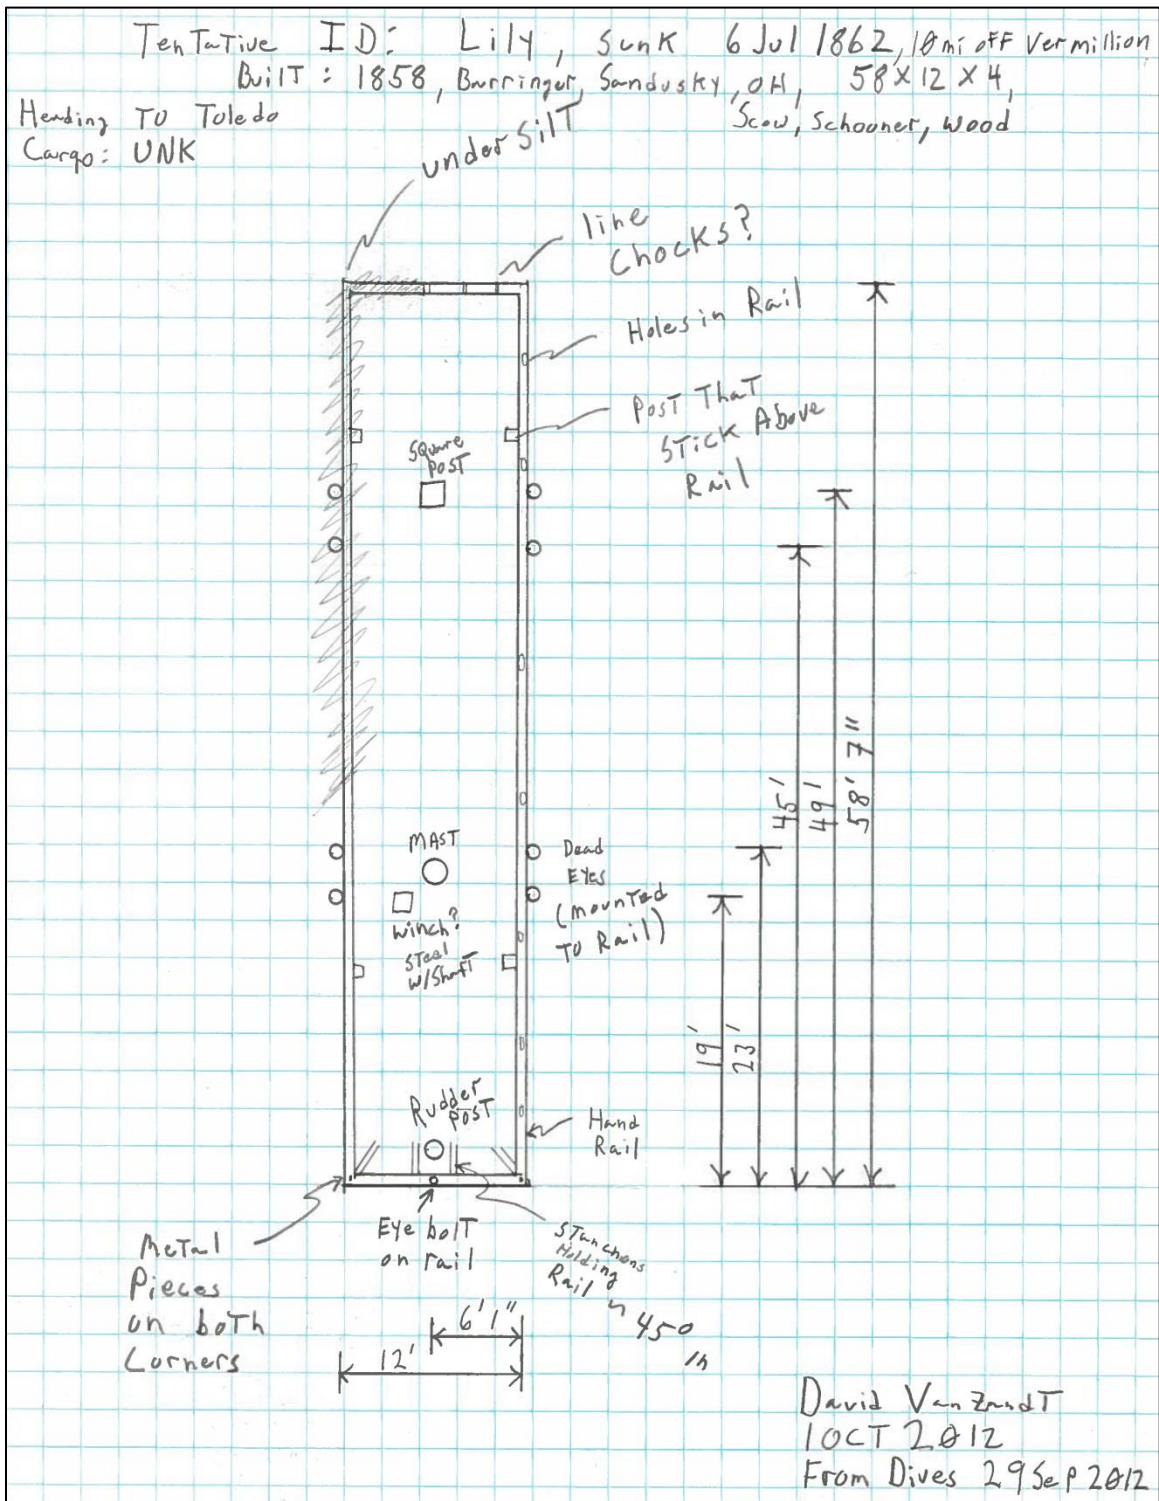 TenTaTive ID: Lily, Sunk 6 Jul 1862, 10 mi off Vermillion
BuilT: 1858, Barringer, Sandusky, OH, 58 X 12 X 4,
Heading TO Toledo
Scow, Schooner, Wood
Cargo: UNK
under SilT
line
Chocks?
Holes in Rail
Post ThaT
STick Above
Rail
Square
PosT
45'
49'
58' 7"
MAST
Dead
Eyes
(mounTed
To Rail)
Winch?
STeel
W/ShafT
19'
23'
Rudder
PosT
Hand
Rail
Eye bolT
on rail
STanchons
Holding
Rail
45°
in
MeTal
Pieces
on boTh
Corners
6' 1"
12'
David VanZandT
1 OCT 2012
From Dives 29 Sep 2012